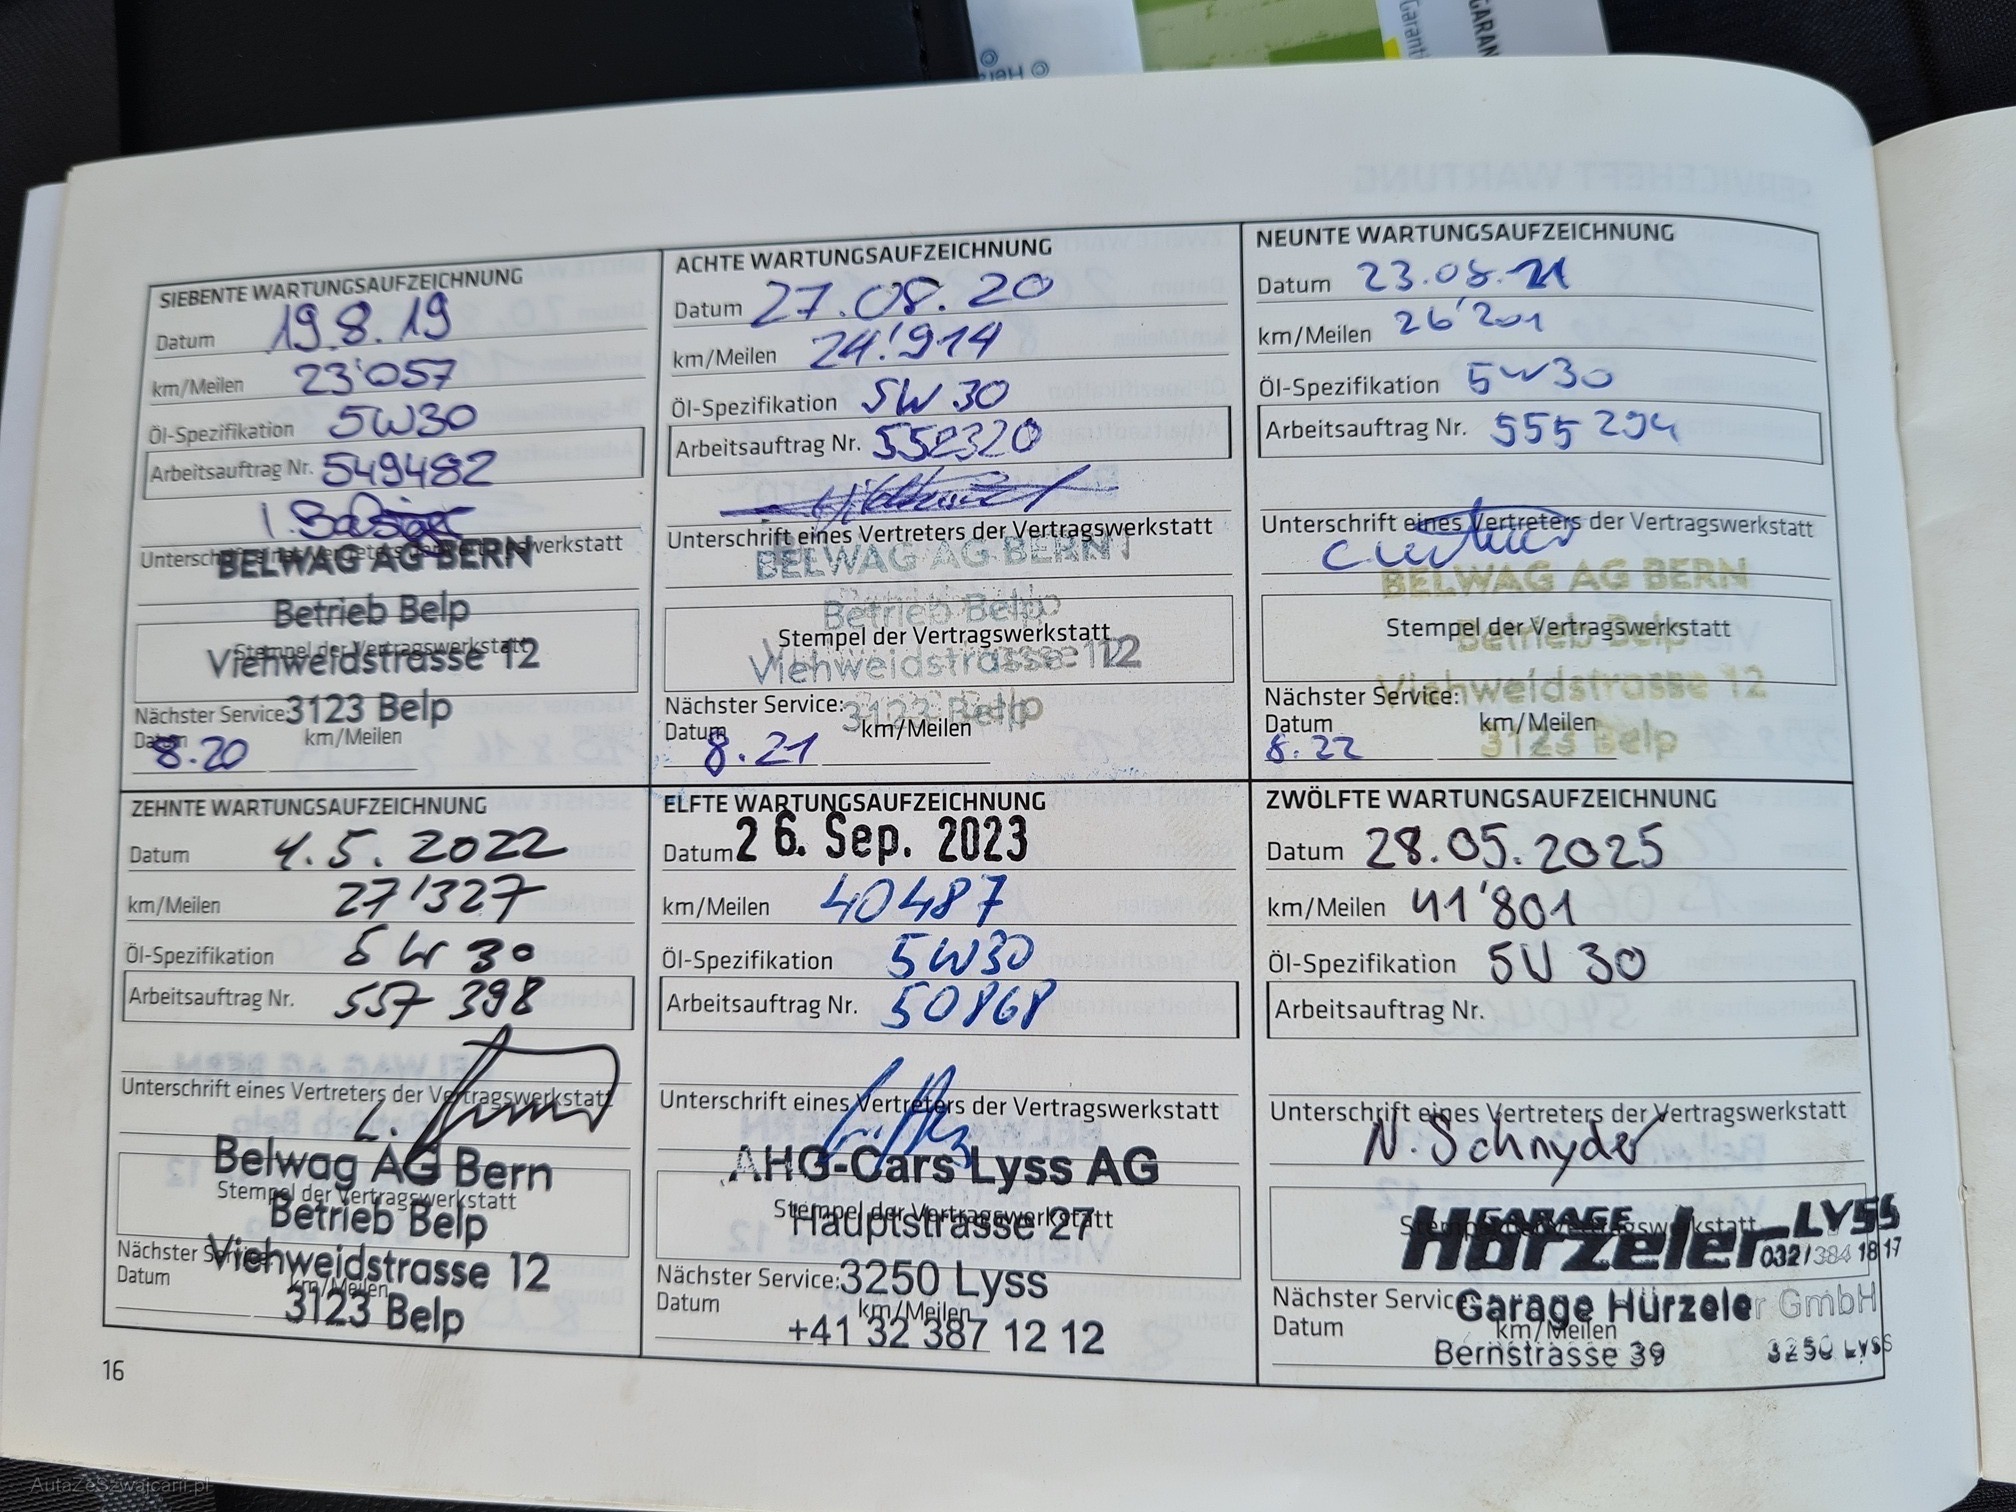 GARAN
Garanti
SIEBENTE WARTUNGSAUFZEICHNUNG
Datum 19.8.19
km/Meilen 23'057
Öl-Spezifikation 5W30
Arbeitsauftrag Nr. 549482
Unterschrift eines Vertreters der Vertragswerkstatt
BELWAG AG BERN
Betrieb Belp
Stempel der Vertragswerkstatt
Viehweidstrasse 12
Nächster Service: 3123 Belp
Datum km/Meilen
8.20
ACHTE WARTUNGSAUFZEICHNUNG
Datum 27.08.20
km/Meilen 24'914
Öl-Spezifikation 5W30
Arbeitsauftrag Nr. 552320
Unterschrift eines Vertreters der Vertragswerkstatt
BELWAG AG BERN
Betrieb Belp
Stempel der Vertragswerkstatt
Viehweidstrasse 12
Nächster Service: 3123 Belp
Datum km/Meilen
8.21
NEUNTE WARTUNGSAUFZEICHNUNG
Datum 23.08.21
km/Meilen 26'201
Öl-Spezifikation 5W30
Arbeitsauftrag Nr. 555 294
Unterschrift eines Vertreters der Vertragswerkstatt
BELWAG AG BERN
Stempel der Vertragswerkstatt
Betrieb Belp
Viehweidstrasse 12
Nächster Service:
Datum km/Meilen
3123 Belp
8.22
ZEHNTE WARTUNGSAUFZEICHNUNG
Datum 4.5.2022
km/Meilen 27'327
Öl-Spezifikation 5W30
Arbeitsauftrag Nr. 557 398
Unterschrift eines Vertreters der Vertragswerkstatt
Belwag AG Bern
Stempel der Vertragswerkstatt
Betrieb Belp
Nächster Service:
Viehweidstrasse 12
Datum km/Meilen
3123 Belp
ELFTE WARTUNGSAUFZEICHNUNG
Datum 26. Sep. 2023
km/Meilen 40487
Öl-Spezifikation 5W30
Arbeitsauftrag Nr. 50868
Unterschrift eines Vertreters der Vertragswerkstatt
AHG-Cars Lyss AG
Stempel der Vertragswerkstatt
Hauptstrasse 27
Nächster Service: 3250 Lyss
Datum km/Meilen
+41 32 387 12 12
ZWÖLFTE WARTUNGSAUFZEICHNUNG
Datum 28.05.2025
km/Meilen 41'801
Öl-Spezifikation 5W 30
Arbeitsauftrag Nr.
Unterschrift eines Vertreters der Vertragswerkstatt
N. Schnyder
Stempel der Vertragswerkstatt
GARAGE LYSS
Hürzeler 032/384 18 17
Nächster Service: Garage Hürzeler GmbH
Datum km/Meilen
Bernstrasse 39 3250 LYSS
16
AutaZeSzwajcarii.pl